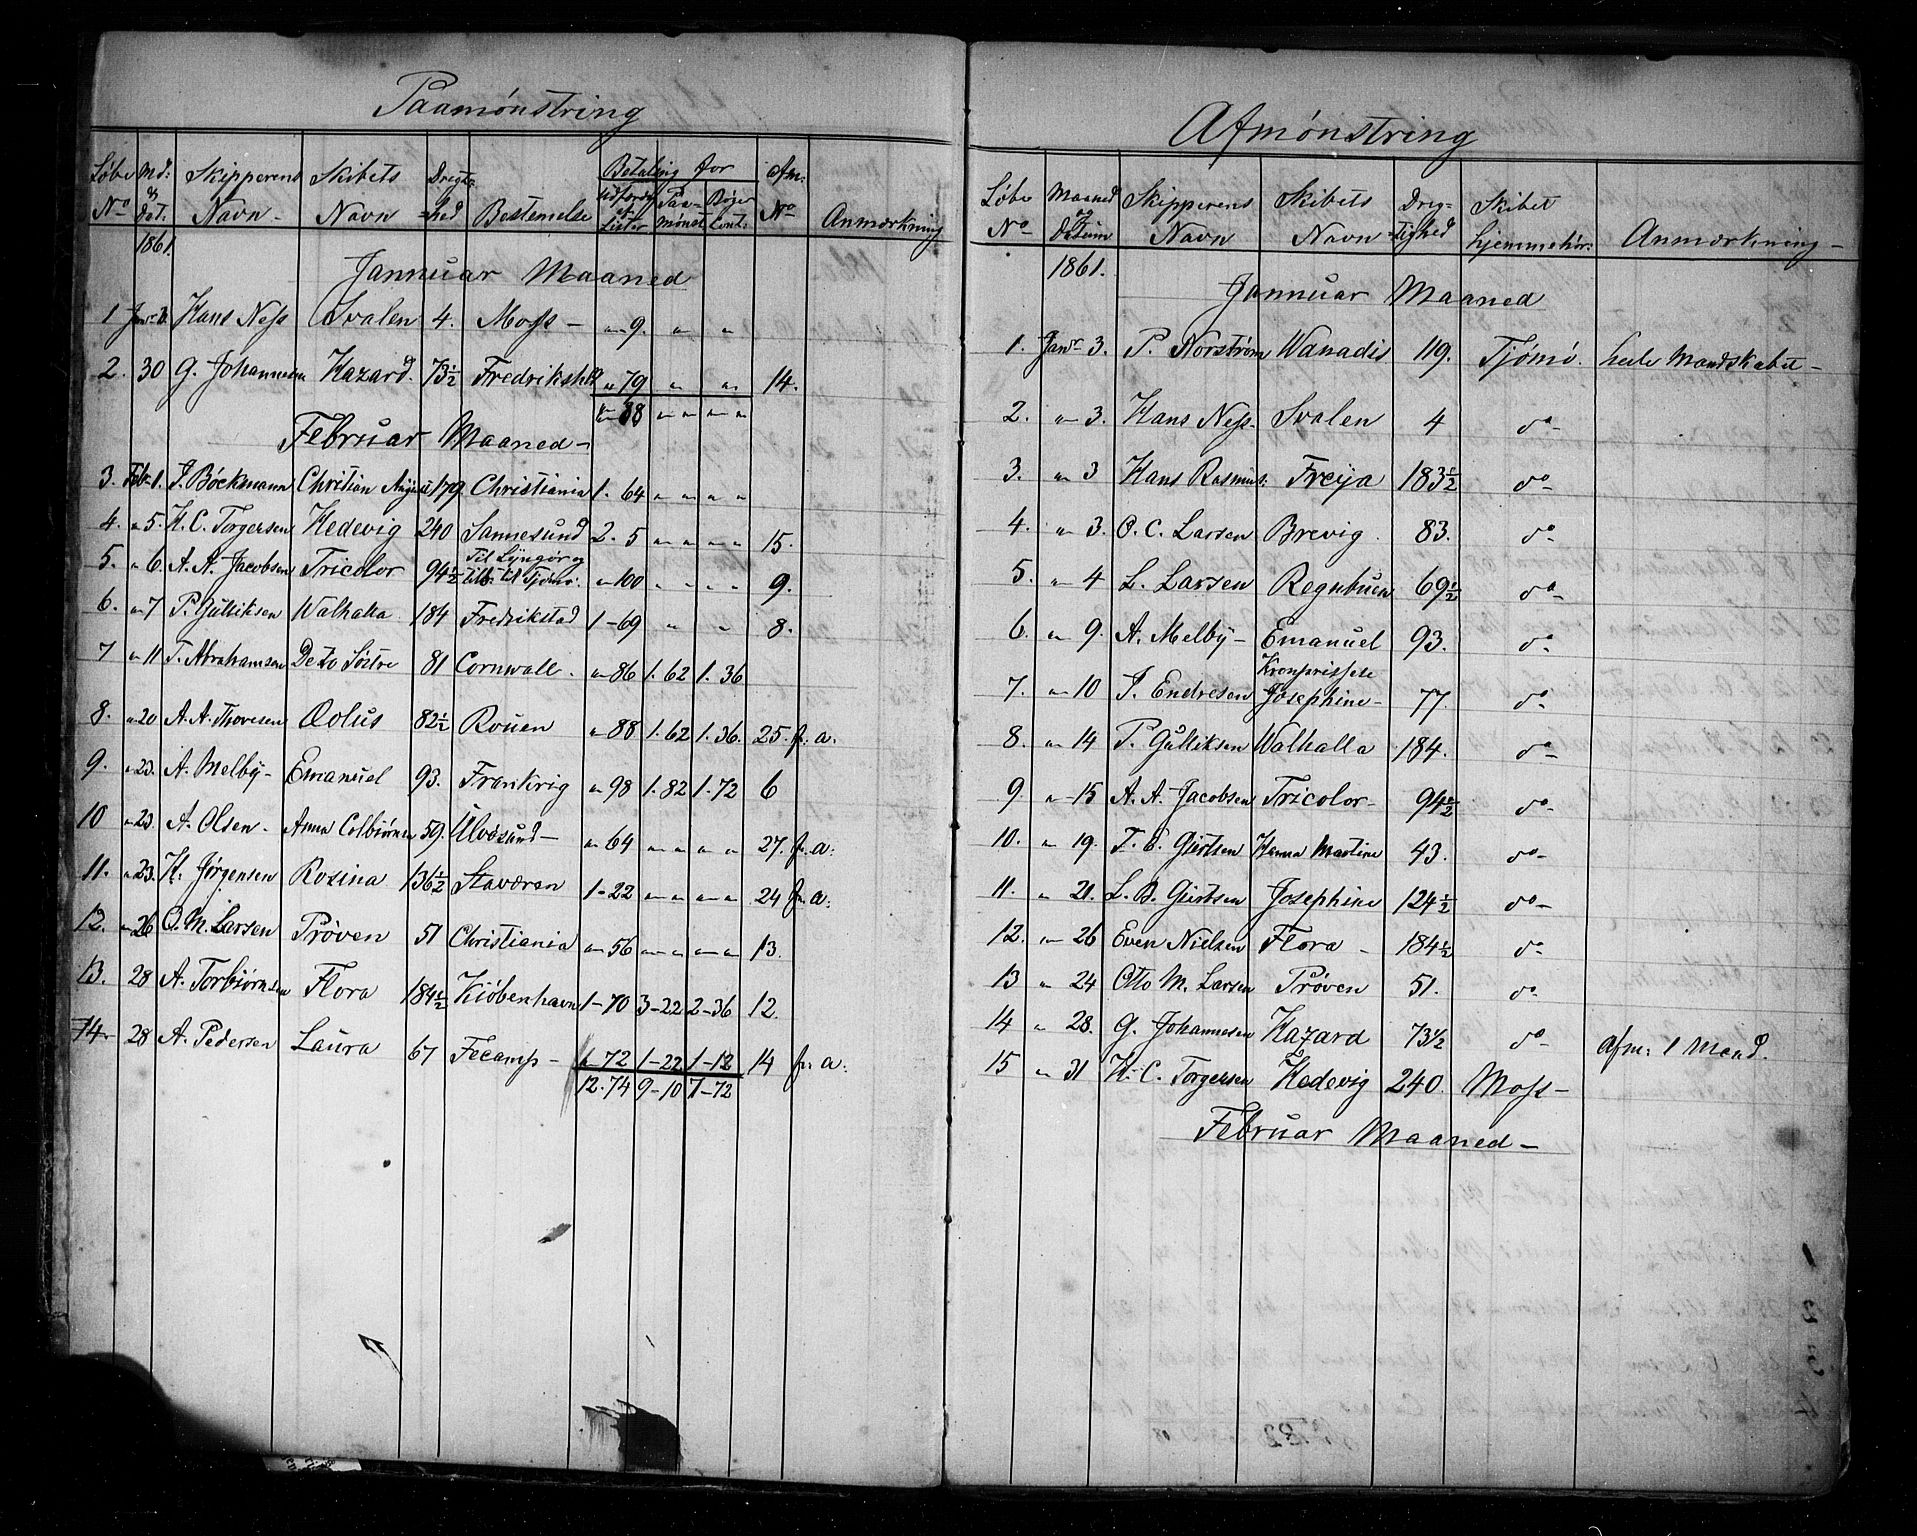 Paamønstring
Løbe No Md: & Dat. Skipperens Navn - Skibets Navn Drigtighed Bestemelse Betaling for Lister Paamønst. Afm. No Anmærkning
1861.
Jannuar Maaned
1 Janr 3. Hans Ness Svalen 4. Moss - " 9. " "
2. 30 G. Johannesen Hazard. 73½ Fredriksh " 79 " " 14.
" 88 " " " "
Februar Maaned -
3. Feb 1. J. Böckmann Chritian August 179. Christiania 1. 64 " " " "
4. " 5. H. C. Torgersen Hedevig 240 Sannesund 2. 5 " " " " 15.
5. " 6. A. A. Jacobsen Tricolor 94½ Til Lyngör og tilb. til Tjømø. " 100 " " " " 9.
6. " 7 P. Gulliksen Walhalla 184 Fredrikstad 1-69 " " 8.
7 " 11 T. Abrahamsen De to Søstre 81 Cornwall. " 86 1. 62 1. 36
8. " 20 A. A. Thoresen Æolus 82½ Rouen " 88 1. 62 1. 36. 25. fr. a.
9. " 23. A. Melby - Emanuel 93. Frankrig " 98 1. 82 1. 72 6
10 " 23. A. Olsen - Anna Colbiørnsen 59. Ulvesund - " 64 " " " " 27. fr. a:
11. " 23. H. Jørgensen Rosina 136½ Staværen 1-22 " " " " 24 fr. a:
12. " 26 O. M. Larsen Prøven 51 Christiania " 56 " " " " 13.
13. 28 A. Torbiørnsen Flora 184½ Kiöbenhavn 1-70 3-22 2-36 12.
14 28 A. Pedersen Laura 67 Fecamp - " 72 1-22 1-12 14 fr. a:
12.74 9-10 7-72
Afmønstring
Løbe No Maaned og Datum Skipperens Navn Skibets Navn Drigtighed Skibet hjemmehør: Anmærkning -
1861.
Jannuar Maaned
1. Janr 3. P. Norstrøm Wanadis 119. Tjømø. hele Mandskabet -
2. " 3. Hans Ness - Svalen 4 do -
3. " 3 Hans Rasmus. Freya 183½ do -
4. " 3. O. C. Larsen Brevig. 83. do -
5. " 4 L. Larsen Regnbuen 69½ do -
6. " 9. A. Melby - Emanuel 93. do -
7. " 10 J. Endresen Kronprissese Josephine - 77. do -
8. " 14 P. Gulliksen Walhalla 184. do -
9. " 15 A. A. Jacobsen Tricolor - 94½ do -
10. " 19. T. C. Giertsen Hanna Martine 43. do -
11. " 21. L. B. Giertsen Josephine 124½ do -
12. " 26 Even Nielsen Flora - 184½ do -
13 " 24 Otto M. Larsen Prøven 51. do -
14 " 28. G. Johannesen Hazard 73½ do - Afm: 1 Mand.
15 " 31 H. C. Torgersen Hedevig 240. Moss -
Februar Maaned -